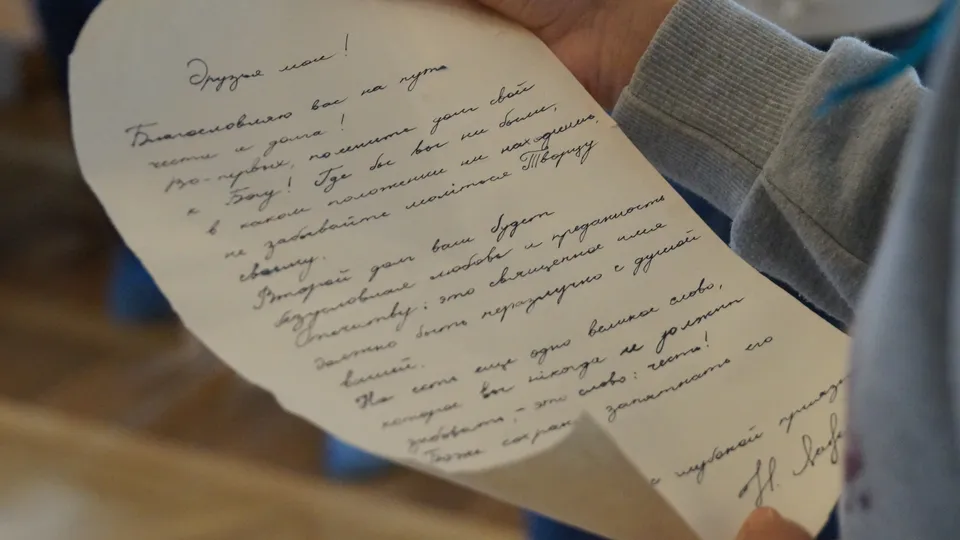 Друзья мои!
Благословляю вас на путь
чести и долга!
Во-первых, помните долг свой
к Богу! Где бы вы ни были,
в каком положении ни находились,
не забывайте молiться Творцу
своему.
Второй долг ваш будет
безусловная любовь и преданность
Отечитву: это священное имя
должно быть неразлучно с душой
вашей.
Но есть еще одно великое слово,
которое вы нiкогда не должны
забывать, - это слово: честь!
Боже сохрани запятнать его
с глубокой приязн
Н.